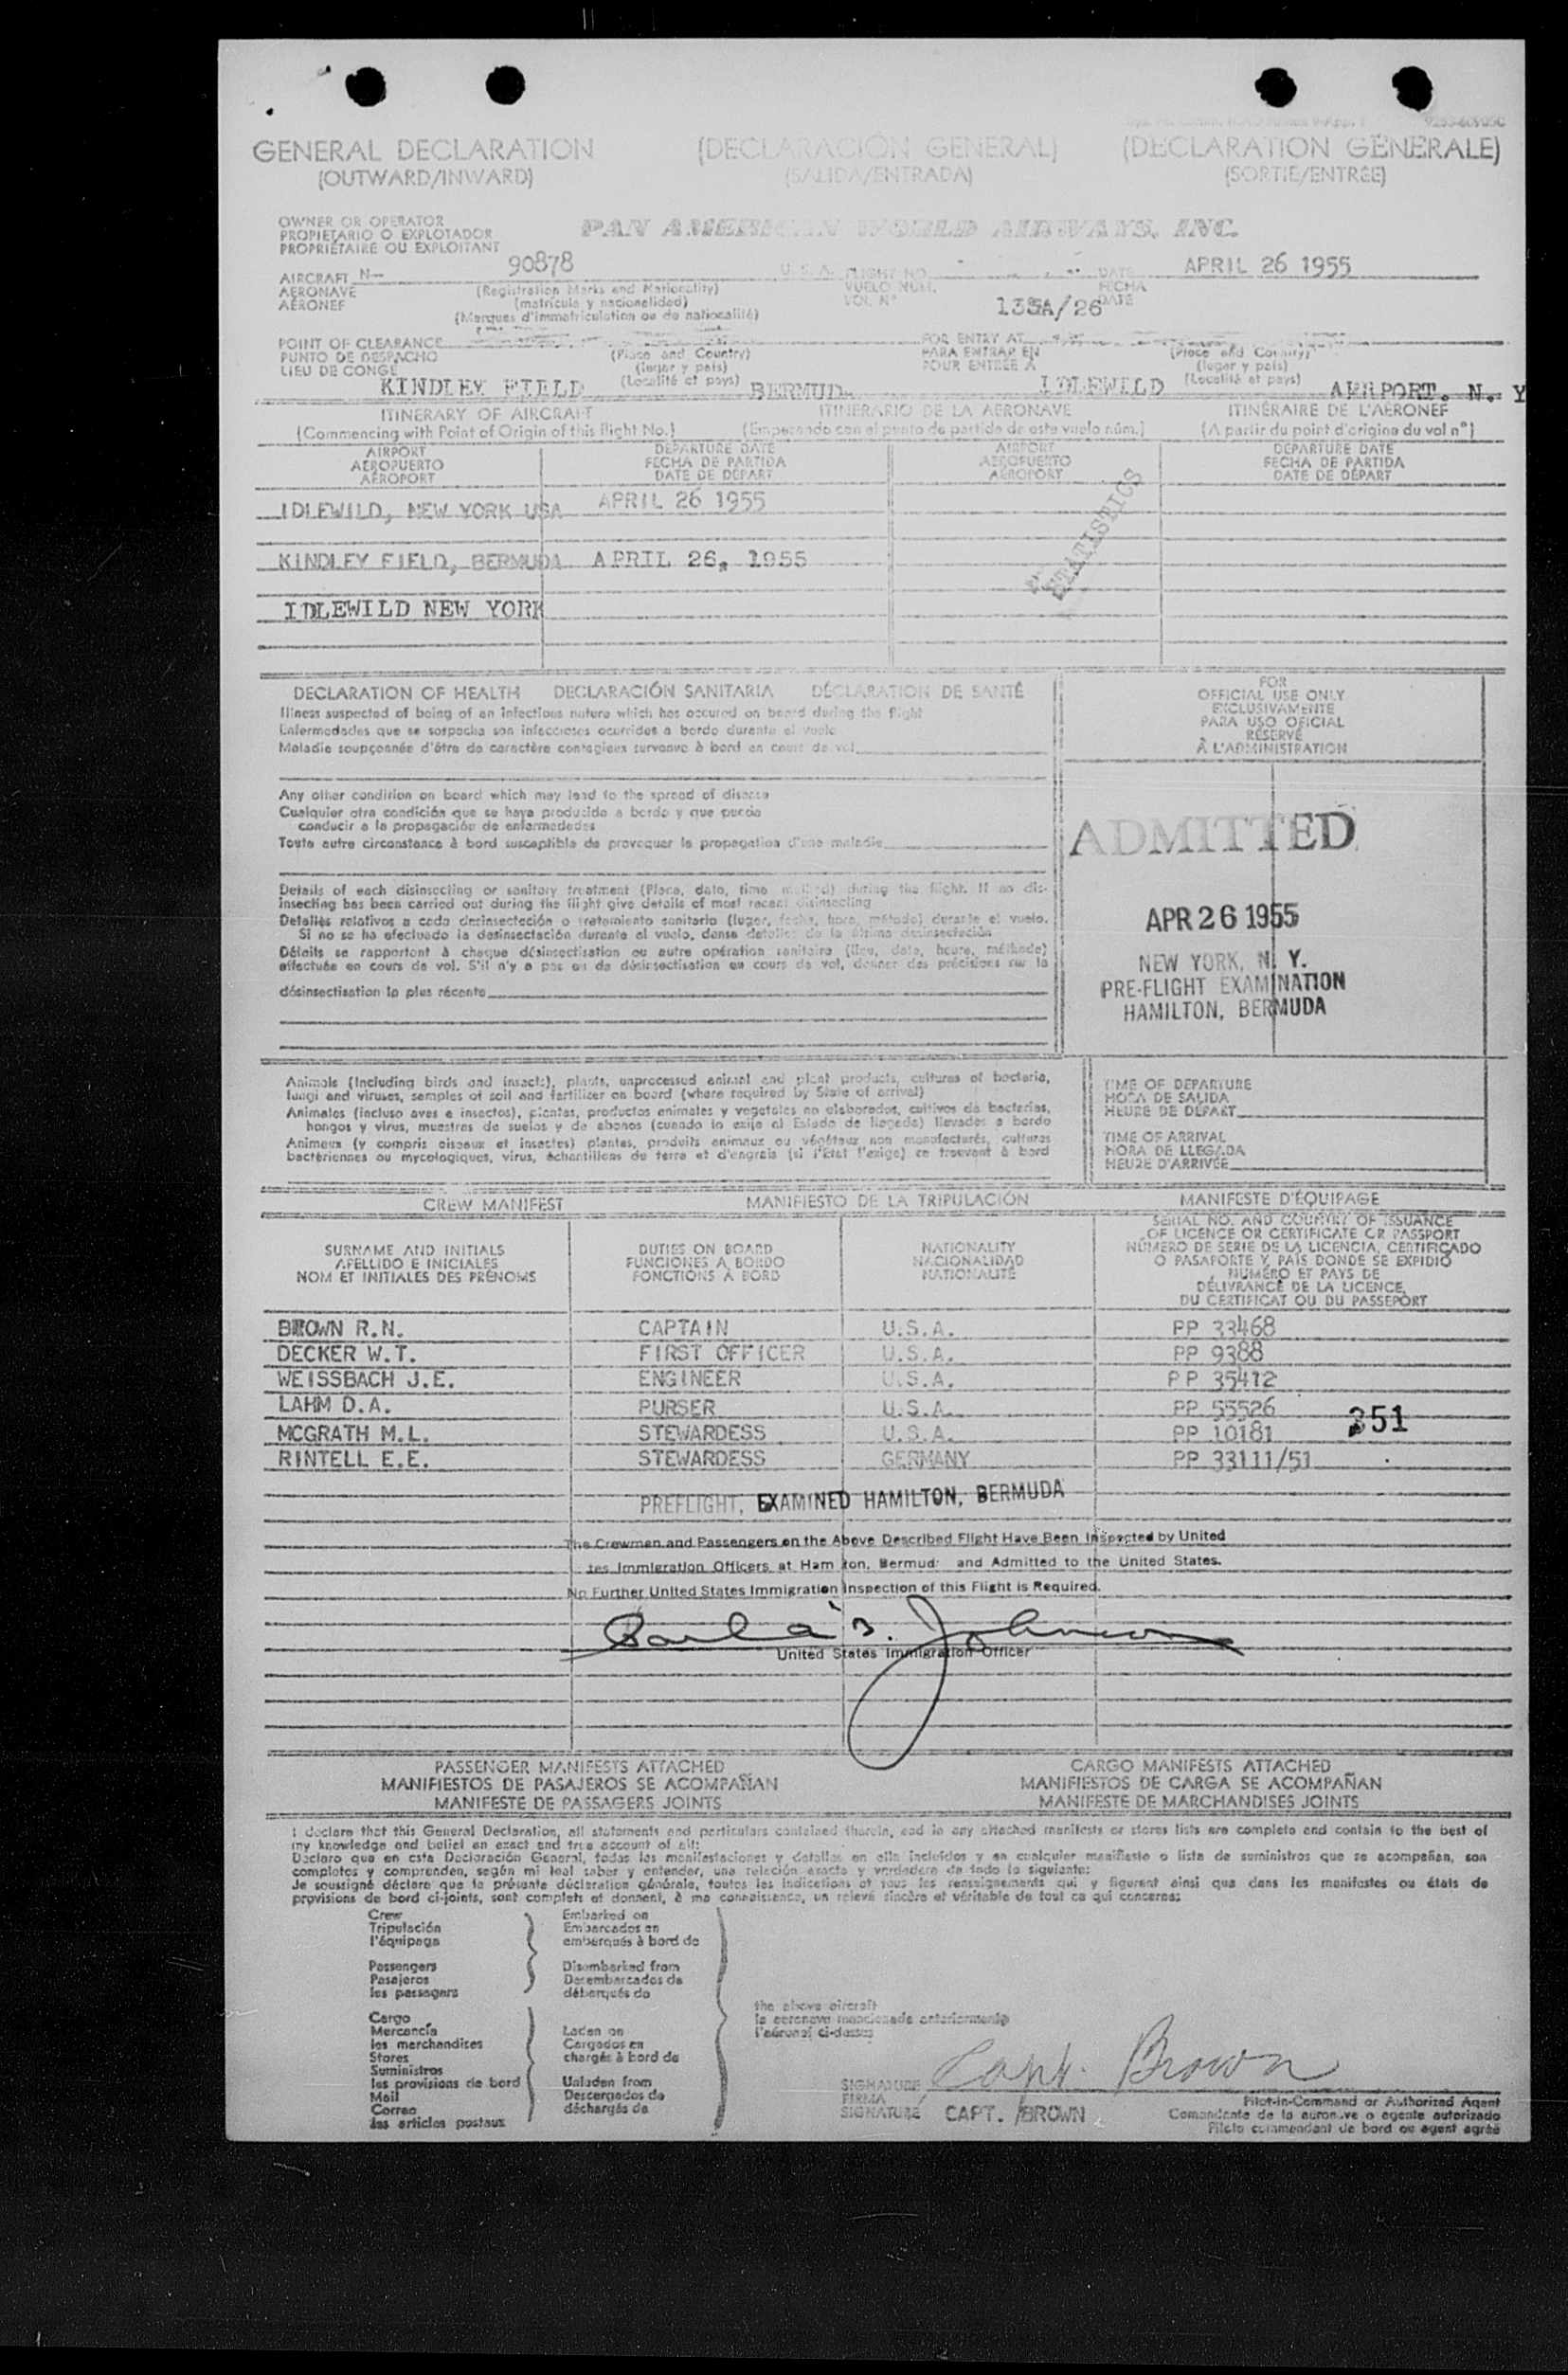 GENERAL DECLARATION
(OUTWARD/INWARD)
(DECLARACIÓN GENERAL)
(SALIDA/ENTRADA)
(DECLARATION GÉNÉRALE)
(SORTIE/ENTRÉE)
OWNER OR OPERATOR
PROPIETARIO O EXPLOTADOR
PROPRIÉTAIRE OU EXPLOITANT
PAN AMERICAN WORLD AIRWAYS, INC.
AIRCRAFT N— 90878 U.S.A.
AERONAVE
AÉRONEF
(Registration Marks and Nationality)
(matrícula y nacionalidad)
(Marques d'immatriculation ou de nationalité)
FLIGHT NO.
VUELO NUM.
VOL N°
DATE APRIL 26 1955
FECHA
DATE
POINT OF CLEARANCE
PUNTO DE DESPACHO
LIEU DE CONGÉ
(Place and Country)
(lugar y país)
(Localité et pays)
KINDLEY FIELD
FOR ENTRY AT
PARA ENTRAR EN
POUR ENTRÉE À
(Place and Country)
(lugar y país)
(Localité et pays)
IDLEWILD AIRPORT. N. Y
ITINERARY OF AIRCRAFT ITINERARIO DE LA AERONAVE ITINÉRAIRE DE L'AÉRONEF
(Commencing with Point of Origin of this flight No.) (Empezando con el punto de partida de este vuelo núm.) (A partir du point d'origine du vol n°)
AIRPORT
AEROPUERTO
AÉROPORT
DEPARTURE DATE
FECHA DE PARTIDA
DATE DE DÉPART
AIRPORT
AEROPUERTO
AÉROPORT
DEPARTURE DATE
FECHA DE PARTIDA
DATE DE DÉPART
IDLEWILD, NEW YORK USA APRIL 26 1955
KINDLEY FIELD, BERMUDA APRIL 26, 1955
IDLEWILD NEW YORK
STATISTICS
DECLARATION OF HEALTH DECLARACIÓN SANITARIA DÉCLARATION DE SANTÉ
Illness suspected of being of an infectious nature which has occured on board during the flight
Enfermedades que se sospecha son infecciosas ocurridas a bordo durante el vuelo
Maladie soupçonnée d'être de caractère contagieux survenue à bord en cours de vol
Any other condition on board which may lead to the spread of disease
Cualquier otra condición que se haya producido a bordo y que pueda
conducir a la propagación de enfermedades
Toute autre circonstance à bord susceptible de provoquer la propagation d'une maladie
Details of each disinsecting or sanitary treatment (Place, date, time method) during the flight. If no dis-
insecting has been carried out during the flight give details of most recent disinsecting
Detalles relativos a cada desinsectación o tratamiento sanitario (lugar, fecha, hora, método) durante el vuelo.
Si no se ha efectuado la desinsectación durante el vuelo, danse detalles de la última desinsectación
Détails se rapportant à chaque désinsectisation ou autre opération sanitaire (lieu, date, heure, méthode)
effectuée en cours de vol. S'il n'y a pas eu de désinsectisation en cours de vol, donner des précisions sur la
désinsectisation la plus récente
FOR
OFFICIAL USE ONLY
EXCLUSIVAMENTE
PARA USO OFICIAL
RÉSERVÉ
À L'ADMINISTRATION
ADMITTED
APR 26 1955
NEW YORK, N. Y.
PRE-FLIGHT EXAMINATION
HAMILTON, BERMUDA
Animals (Including birds and insects), plants, unprocessed animal and plant products, cultures of bacteria,
fungi and viruses, samples of soil and fertilizer on board (where required by State of arrival)
Animales (incluso aves e insectos), plantas, productos animales y vegetales no elaborados, cultivos de bacterias,
hongos y virus, muestras de suelos y de abonos (cuando lo exija el Estado de llegada) llevados a bordo
Animaux (y compris oiseaux et insectes) plantes, produits animaux ou végétaux non manufacturés, cultures
bactériennes ou mycologiques, virus, échantillons de terre et d'engrais (si l'État l'exige) se trouvant à bord
TIME OF DEPARTURE
HORA DE SALIDA
HEURE DE DÉPART
TIME OF ARRIVAL
HORA DE LLEGADA
HEURE D'ARRIVÉE
CREW MANIFEST MANIFIESTO DE LA TRIPULACIÓN MANIFESTE D'ÉQUIPAGE
SURNAME AND INITIALS
APELLIDO E INICIALES
NOM ET INITIALES DES PRÉNOMS
DUTIES ON BOARD
FUNCIONES A BORDO
FONCTIONS À BORD
NATIONALITY
NACIONALIDAD
NATIONALITÉ
SERIAL NO. AND COUNTRY OF ISSUANCE
OF LICENCE OR CERTIFICATE OR PASSPORT
NÚMERO DE SERIE DE LA LICENCIA, CERTIFICADO
O PASAPORTE Y PAÍS DONDE SE EXPIDIÓ
NUMÉRO ET PAYS DE
DÉLIVRANCE DE LA LICENCE,
DU CERTIFICAT OU DU PASSEPORT
BROWN R.N. CAPTAIN U.S.A. PP 33468
DECKER W.T. FIRST OFFICER U.S.A. PP 9388
WEISSBACH J.E. ENGINEER U.S.A. PP 35412
LAHM D.A. PURSER U.S.A. PP 55526
MCGRATH M.L. STEWARDESS U.S.A. PP 10181
RINTELL E.E. STEWARDESS GERMANY PP 33111/51
351
PREFLIGHT, EXAMINED HAMILTON, BERMUDA
The Crewmen and Passengers on the Above Described Flight Have Been Inspected by United
tes Immigration Officers at Ham ton, Bermud and Admitted to the United States.
No Further United States Immigration Inspection of this Flight is Required.
Johnson
United States Immigration Officer
PASSENGER MANIFESTS ATTACHED
MANIFIESTOS DE PASAJEROS SE ACOMPAÑAN
MANIFESTE DE PASSAGERS JOINTS
CARGO MANIFESTS ATTACHED
MANIFIESTOS DE CARGA SE ACOMPAÑAN
MANIFESTE DE MARCHANDISES JOINTS
I declare that this General Declaration, all statements and particulars contained therein, and in any attached manifests or stores lists are complete and contain to the best of
my knowledge and belief an exact and true account of all:
Declaro que en esta Declaración General, todas las manifestaciones y detalles en ella incluidos y en cualquier manifiesto o lista de suministros que se acompañan, son
completos y comprenden, según mi leal saber y entender, una relación exacta y verdadera de todo lo siguiente:
Je soussigné déclare que la présente déclaration générale, toutes les indications et tous les renseignements qui y figurent ainsi que dans les manifestes ou états de
provisions de bord ci-joints, sont complets et donnent, à ma connaissance, un relevé sincère et véritable de tout ce qui concerne:
Crew
Tripulación
l'équipage
Embarked on
Embarcados en
embarqués à bord de
Passengers
Pasajeros
les passagers
Disembarked from
Desembarcados de
débarqués de
Cargo
Mercancía
les marchandises
Stores
Suministros
les provisions de bord
Mail
Correo
les articles postaux
Laden on
Cargados en
chargés à bord de
Unladen from
Descargados de
déchargés de
the above aircraft
la aeronave mencionada anteriormente
l'aéronef ci-dessus
SIGNATURE Capt. Brown
FIRMA
SIGNATURE CAPT. BROWN
Pilot-in-Command or Authorized Agent
Comandante de la aeronave o agente autorizado
Pilote commandant de bord ou agent agréé